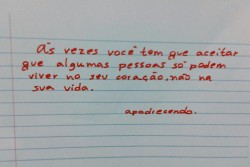 Ás vezes você tem que aceitar
que algumas pessoas só podem
viver no seu coração, não na
sua vida.
apadrecendo.